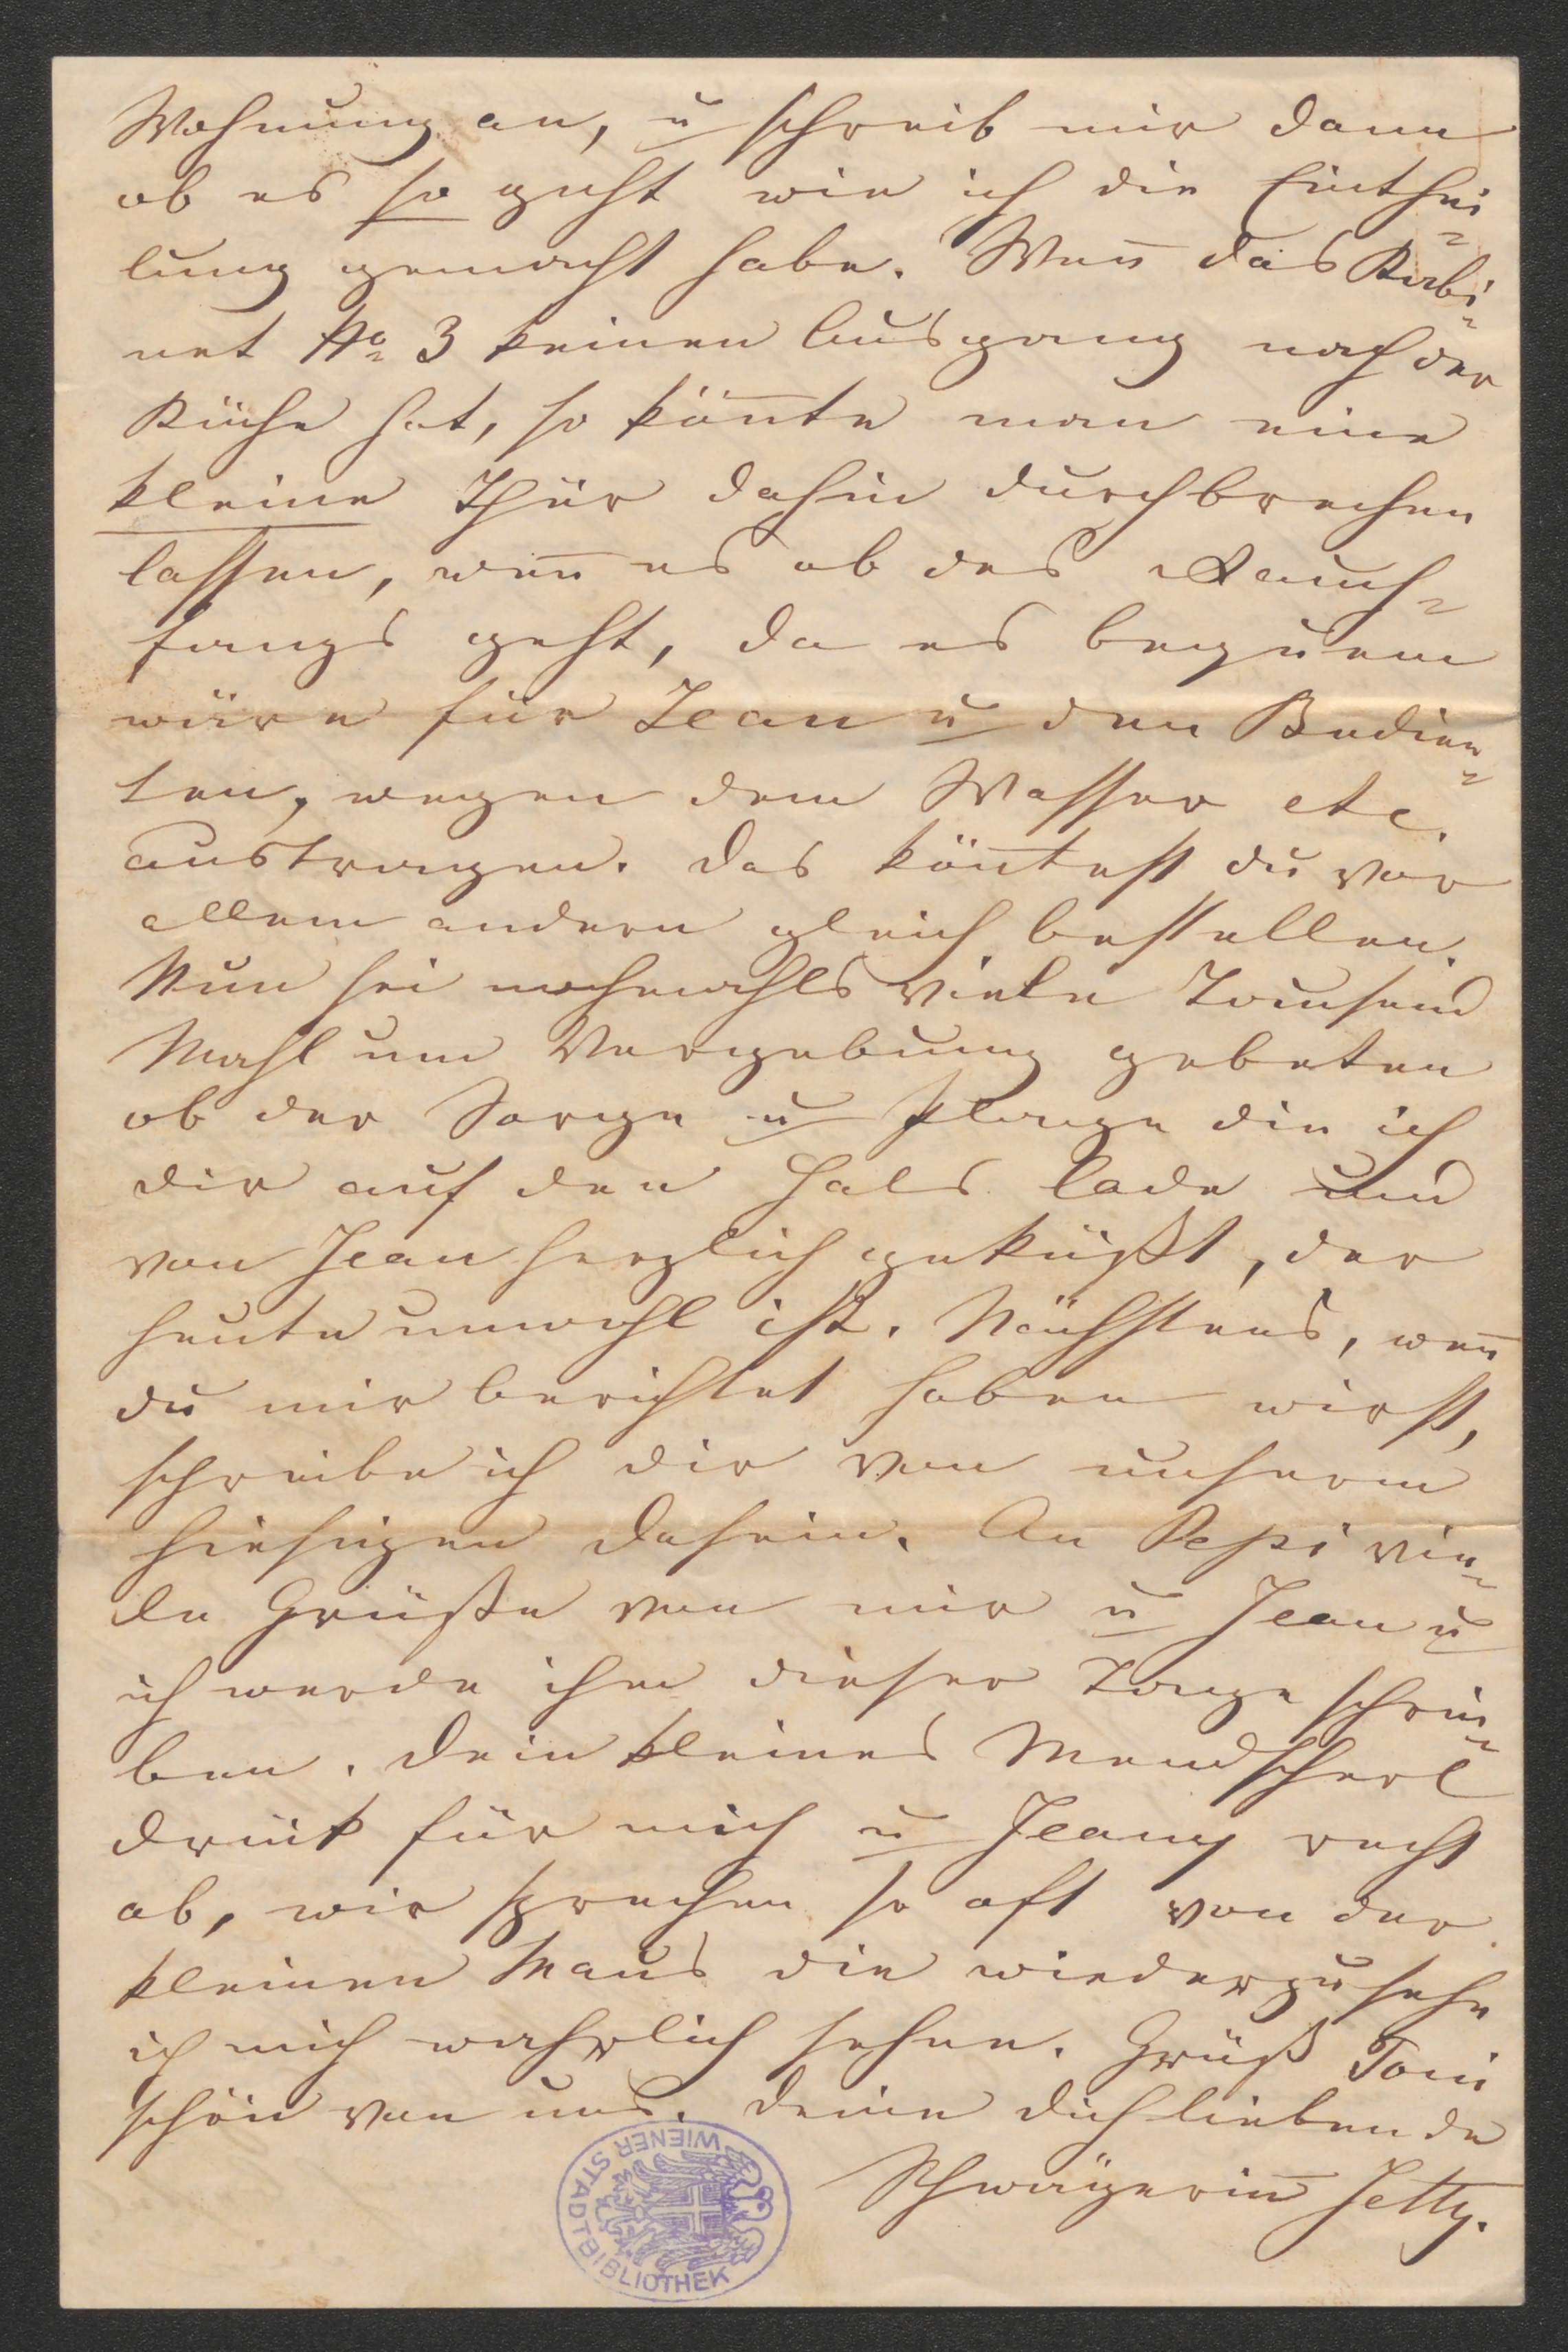 Wohnung an, u schreib mir dann
ob es so geht wie ich die Einthei=
lung gemacht habe. Weñ das Kabi=
net No 3 keinen Ausgang nach der
Küche hat, so köñte man eine
kleine Thür dahin durchbrechen
lassen, weñ es ob des Rauch=
fangs geht, da es bequem
wäre für Jean u den Bedien=
ten, wegen dem Wasser etc.
austragen. Das köñtest du vor
allem andern gleich bestellen.
Nun sei nochmahls viele Tausend
Mahl um Vergebung gebeten
ob der Sorge u Plage die ich
dir auf den Hals lade und
von Jean herzlich geküßt, der
heute unwohl ist. Nächstens, weñ
du mir berichtet haben wirst,
schreibe ich dir von unserm
hiesigen Dasein. An Pepi vie=
le Grüße von mir u Jean u
ich werde ihm dieser Tage schrei=
ben. Dein kleines Mendscherl
drück für mich u Jeany recht
ab, wir sprechen so oft von der
kleinen Maus die wiederzusehn
ich mich wahrlich sehne. Grüß Toni
schön von uns. Deine dich liebende
Schwägeriñ Jetty.
WIENER STADTBIBLIOTHEK